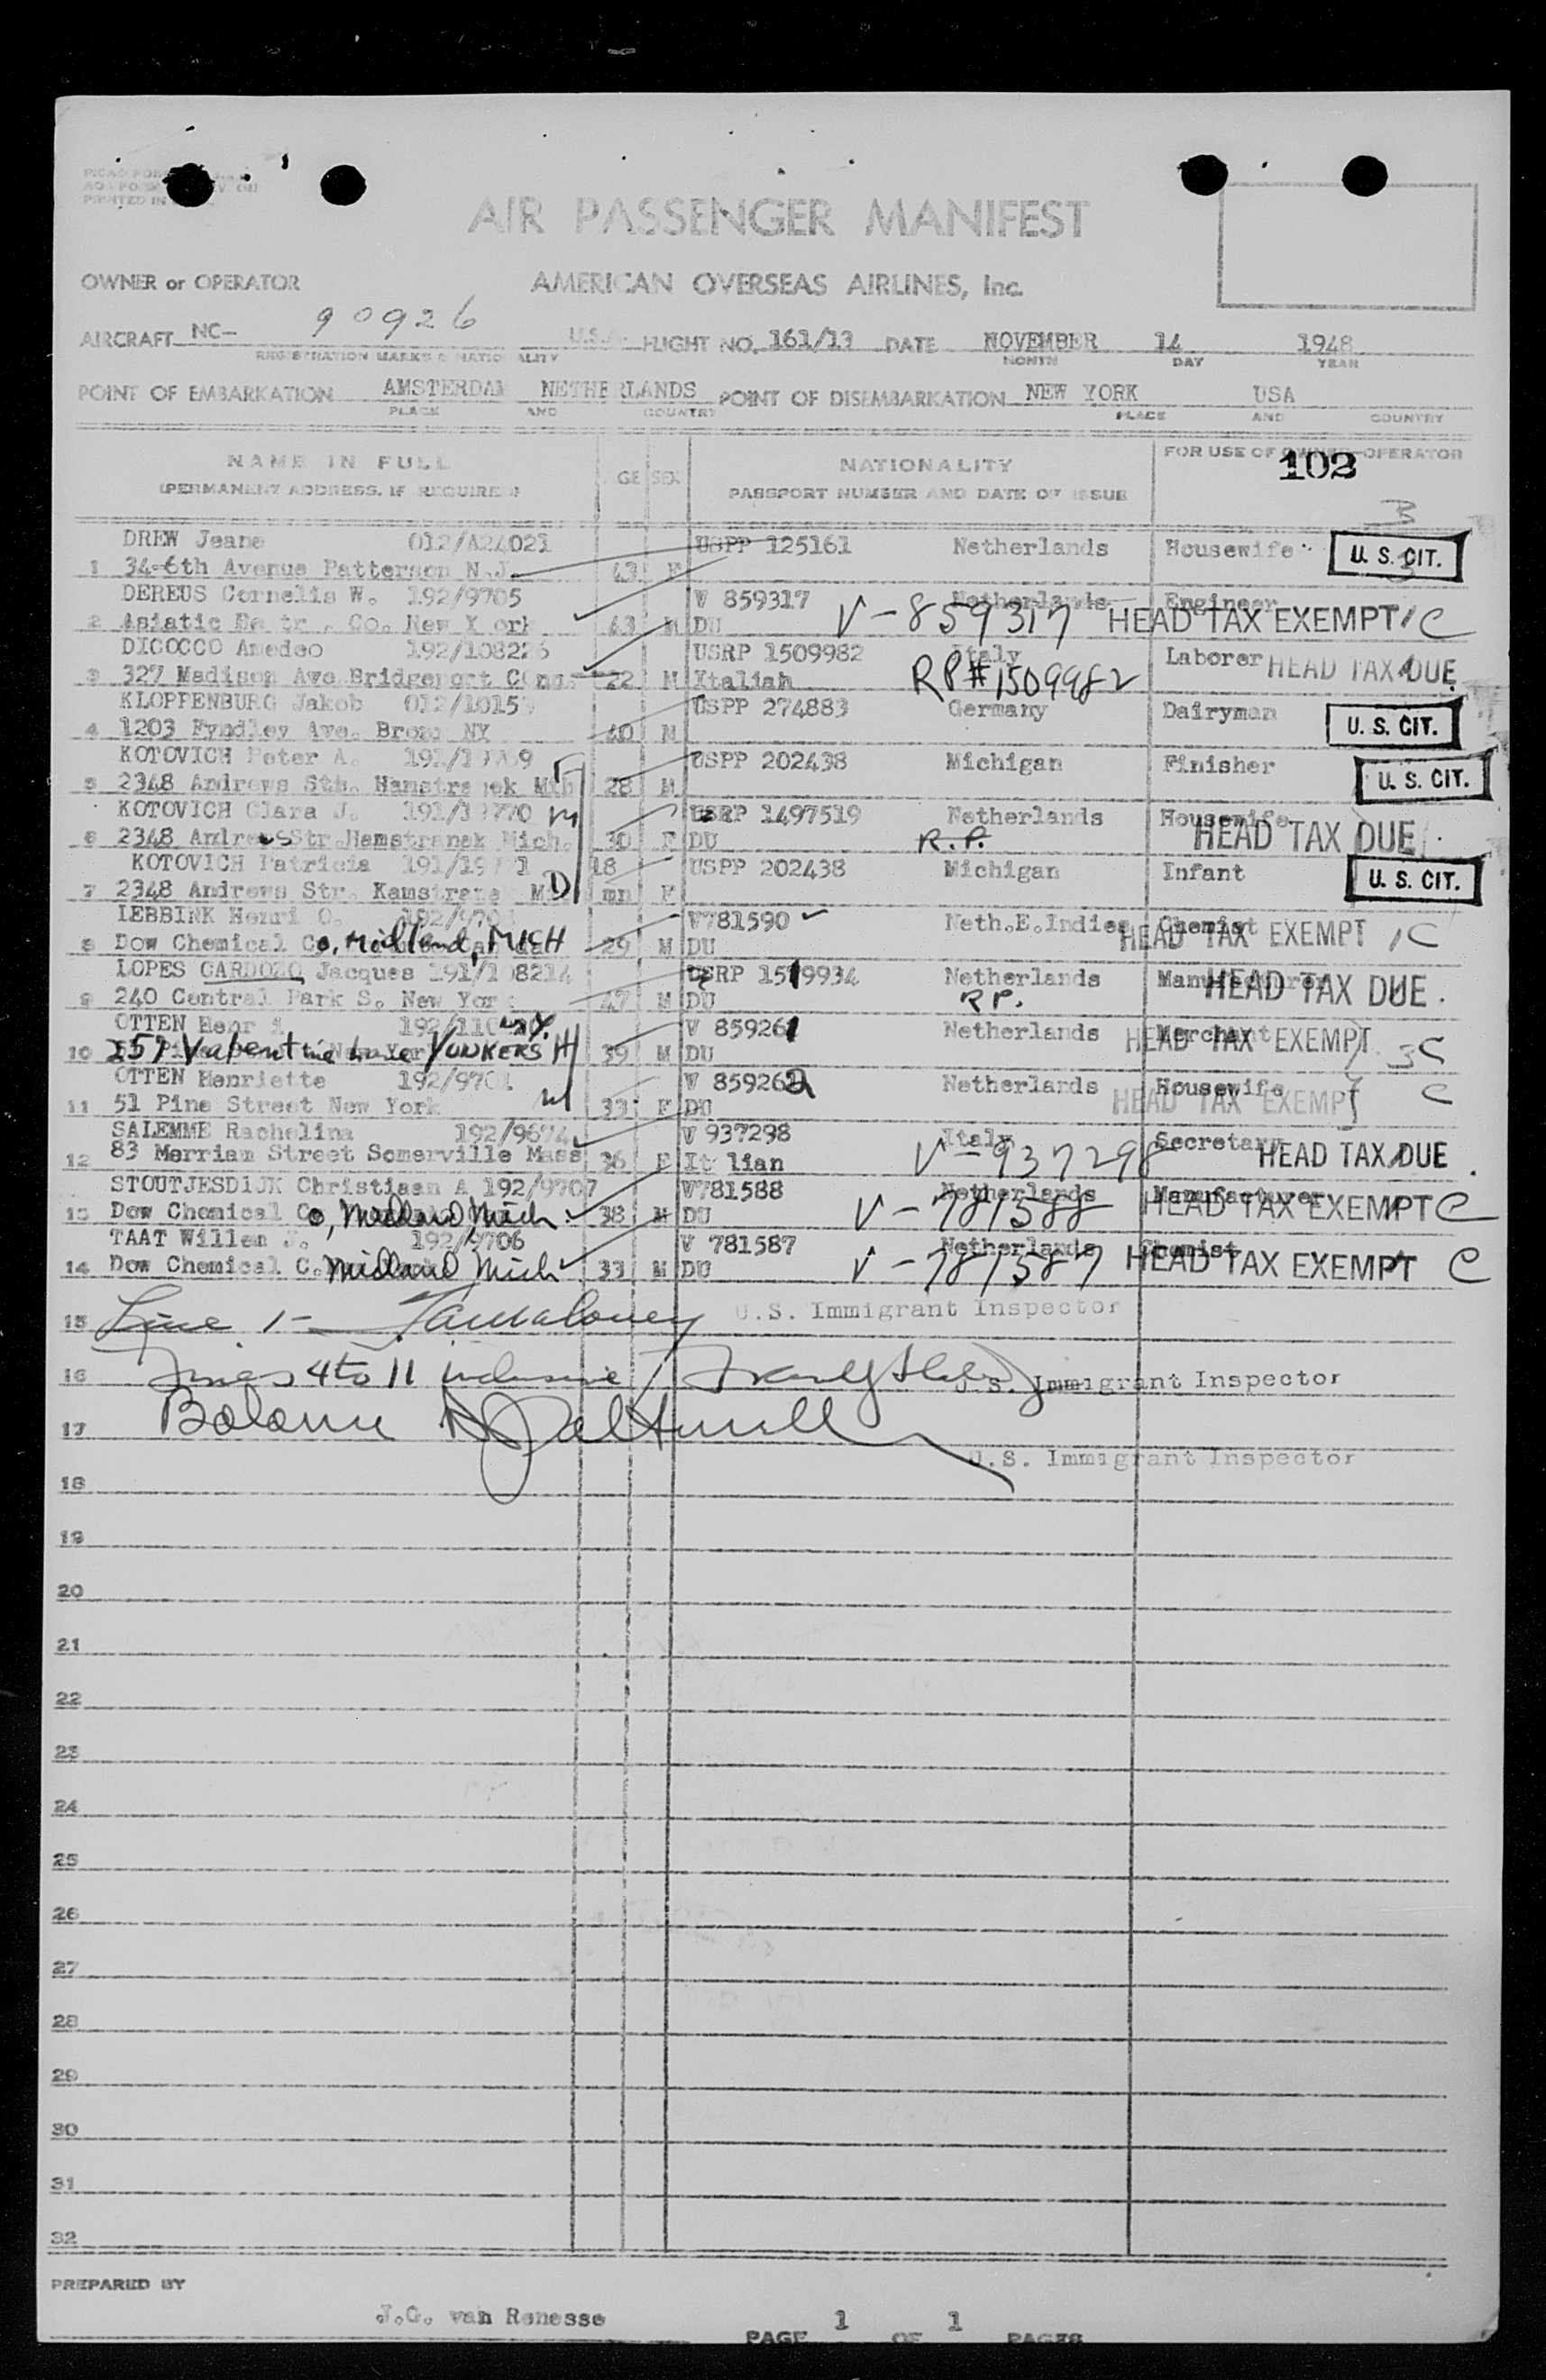 AIR PASSENGER MANIFEST
OWNER or OPERATOR AMERICAN OVERSEAS AIRLINES, Inc.
AIRCRAFT NC- 90926 U.S.A. FLIGHT NO. 161/13 DATE NOVEMBER 14 1948
REGISTRATION MARKS & NATIONALITY MONTH DAY YEAR
POINT OF EMBARKATION AMSTERDAM NETHERLANDS POINT OF DISEMBARKATION NEW YORK USA
PLACE AND COUNTRY PLACE AND COUNTRY
NAME IN FULL NATIONALITY FOR USE OF OWNER-OPERATOR
(PERMANENT ADDRESS, IF REQUIRED) GE SEX PASSPORT NUMBER AND DATE OF ISSUE 102
DREW Jeane 012/A24021 USPP 125161 Netherlands Housewife U. S. CIT.
1 34-6th Avenue Patterson N.J. 43 F
DEREUS Cornelis W. 192/9705 V 859317 Netherlands Engineer
2 Asiatic Co. New York 43 M DU V-859317 HEAD TAX EXEMPT 1C
DICOCCO Amedeo 192/108226 USRP 1509982 Italy Laborer HEAD TAX DUE
3 327 Madison Ave Bridgeport Conn. 22 M Italian RP# 1509982
KLOPPENBURG Jakob 012/1015 USPP 274883 Germany Dairyman U. S. CIT.
4 1203 Fyndley Ave. Bronx NY 40 M
KOTOVICH Peter A. USPP 202438 Michigan Finisher U. S. CIT.
5 2348 Andrews Sth. Hamstranek Mich 28 M
KOTOVICH Clara J. 191/19770 M USRP 1497519 Netherlands Housewife
6 2348 Andrews Str. Hamstranek Mich. 30 F DU R.P. HEAD TAX DUE
KOTOVICH Patricia 18 USPP 202438 Michigan Infant U. S. CIT.
7 2348 Andrews Str. D mn F
LEBBINK Henri O. V781590 Neth.E.Indies Chemist
8 Dow Chemical Co, Midland, MICH 29 M DU HEAD TAX EXEMPT 1C
LOPES CARDOZO Jacques 191/108214 USRP 1519934 Netherlands Manufacturer
9 240 Central Park S. New York 47 M DU RP. HEAD TAX DUE.
OTTEN Henri V 859261 Netherlands Merchant
10 Valentine lane YONKERS H 39 M DU HEAD TAX EXEMPT 3C
OTTEN Henriette 192/9701 V 859262 Netherlands Housewife C
11 51 Pine Street New York W 33 F DU HEAD TAX EXEMPT
SALEMME Rachelina 192/9674 V 937298 Italy Secretary
12 83 Merriam Street Somerville Mass 36 F Italian V-937298 HEAD TAX DUE
STOUTJESDIJK Christiaan A 192/9707 V781588 Netherlands Manufacturer
13 Dow Chemical Co, Midland, Mich 38 M DU V-781588 HEAD TAX EXEMPT C
TAAT Willem J. 192/9706 V 781587 Netherlands Chemist
14 Dow Chemical C. Midland, Mich 33 M DU V-781587 HEAD TAX EXEMPT C
15 Line 1- U.S. Immigrant Inspector
16 Lines 4 to 11 inclusive U.S. Immigrant Inspector
17 Balance
U.S. Immigrant Inspector
18
19
20
21
22
23
24
25
26
27
28
29
30
31
32
PREPARED BY
J.G. van Renesse
PAGE 1 OF 1 PAGES